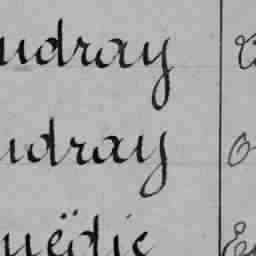 udray
udray
uëdic